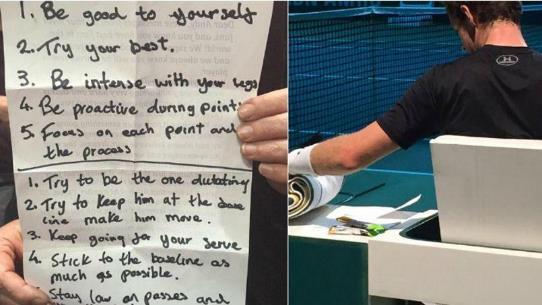 1. Be good to yourself
2. Try your best.
3. Be intense with your legs
4. Be proactive during points
5. Focus on each point and
the process
1. Try to be the one dictating
2. Try to keep him at the base
line make him move.
3. Keep going for your serve
4. Stick to the baseline as
much as possible.
Stay low on passes and